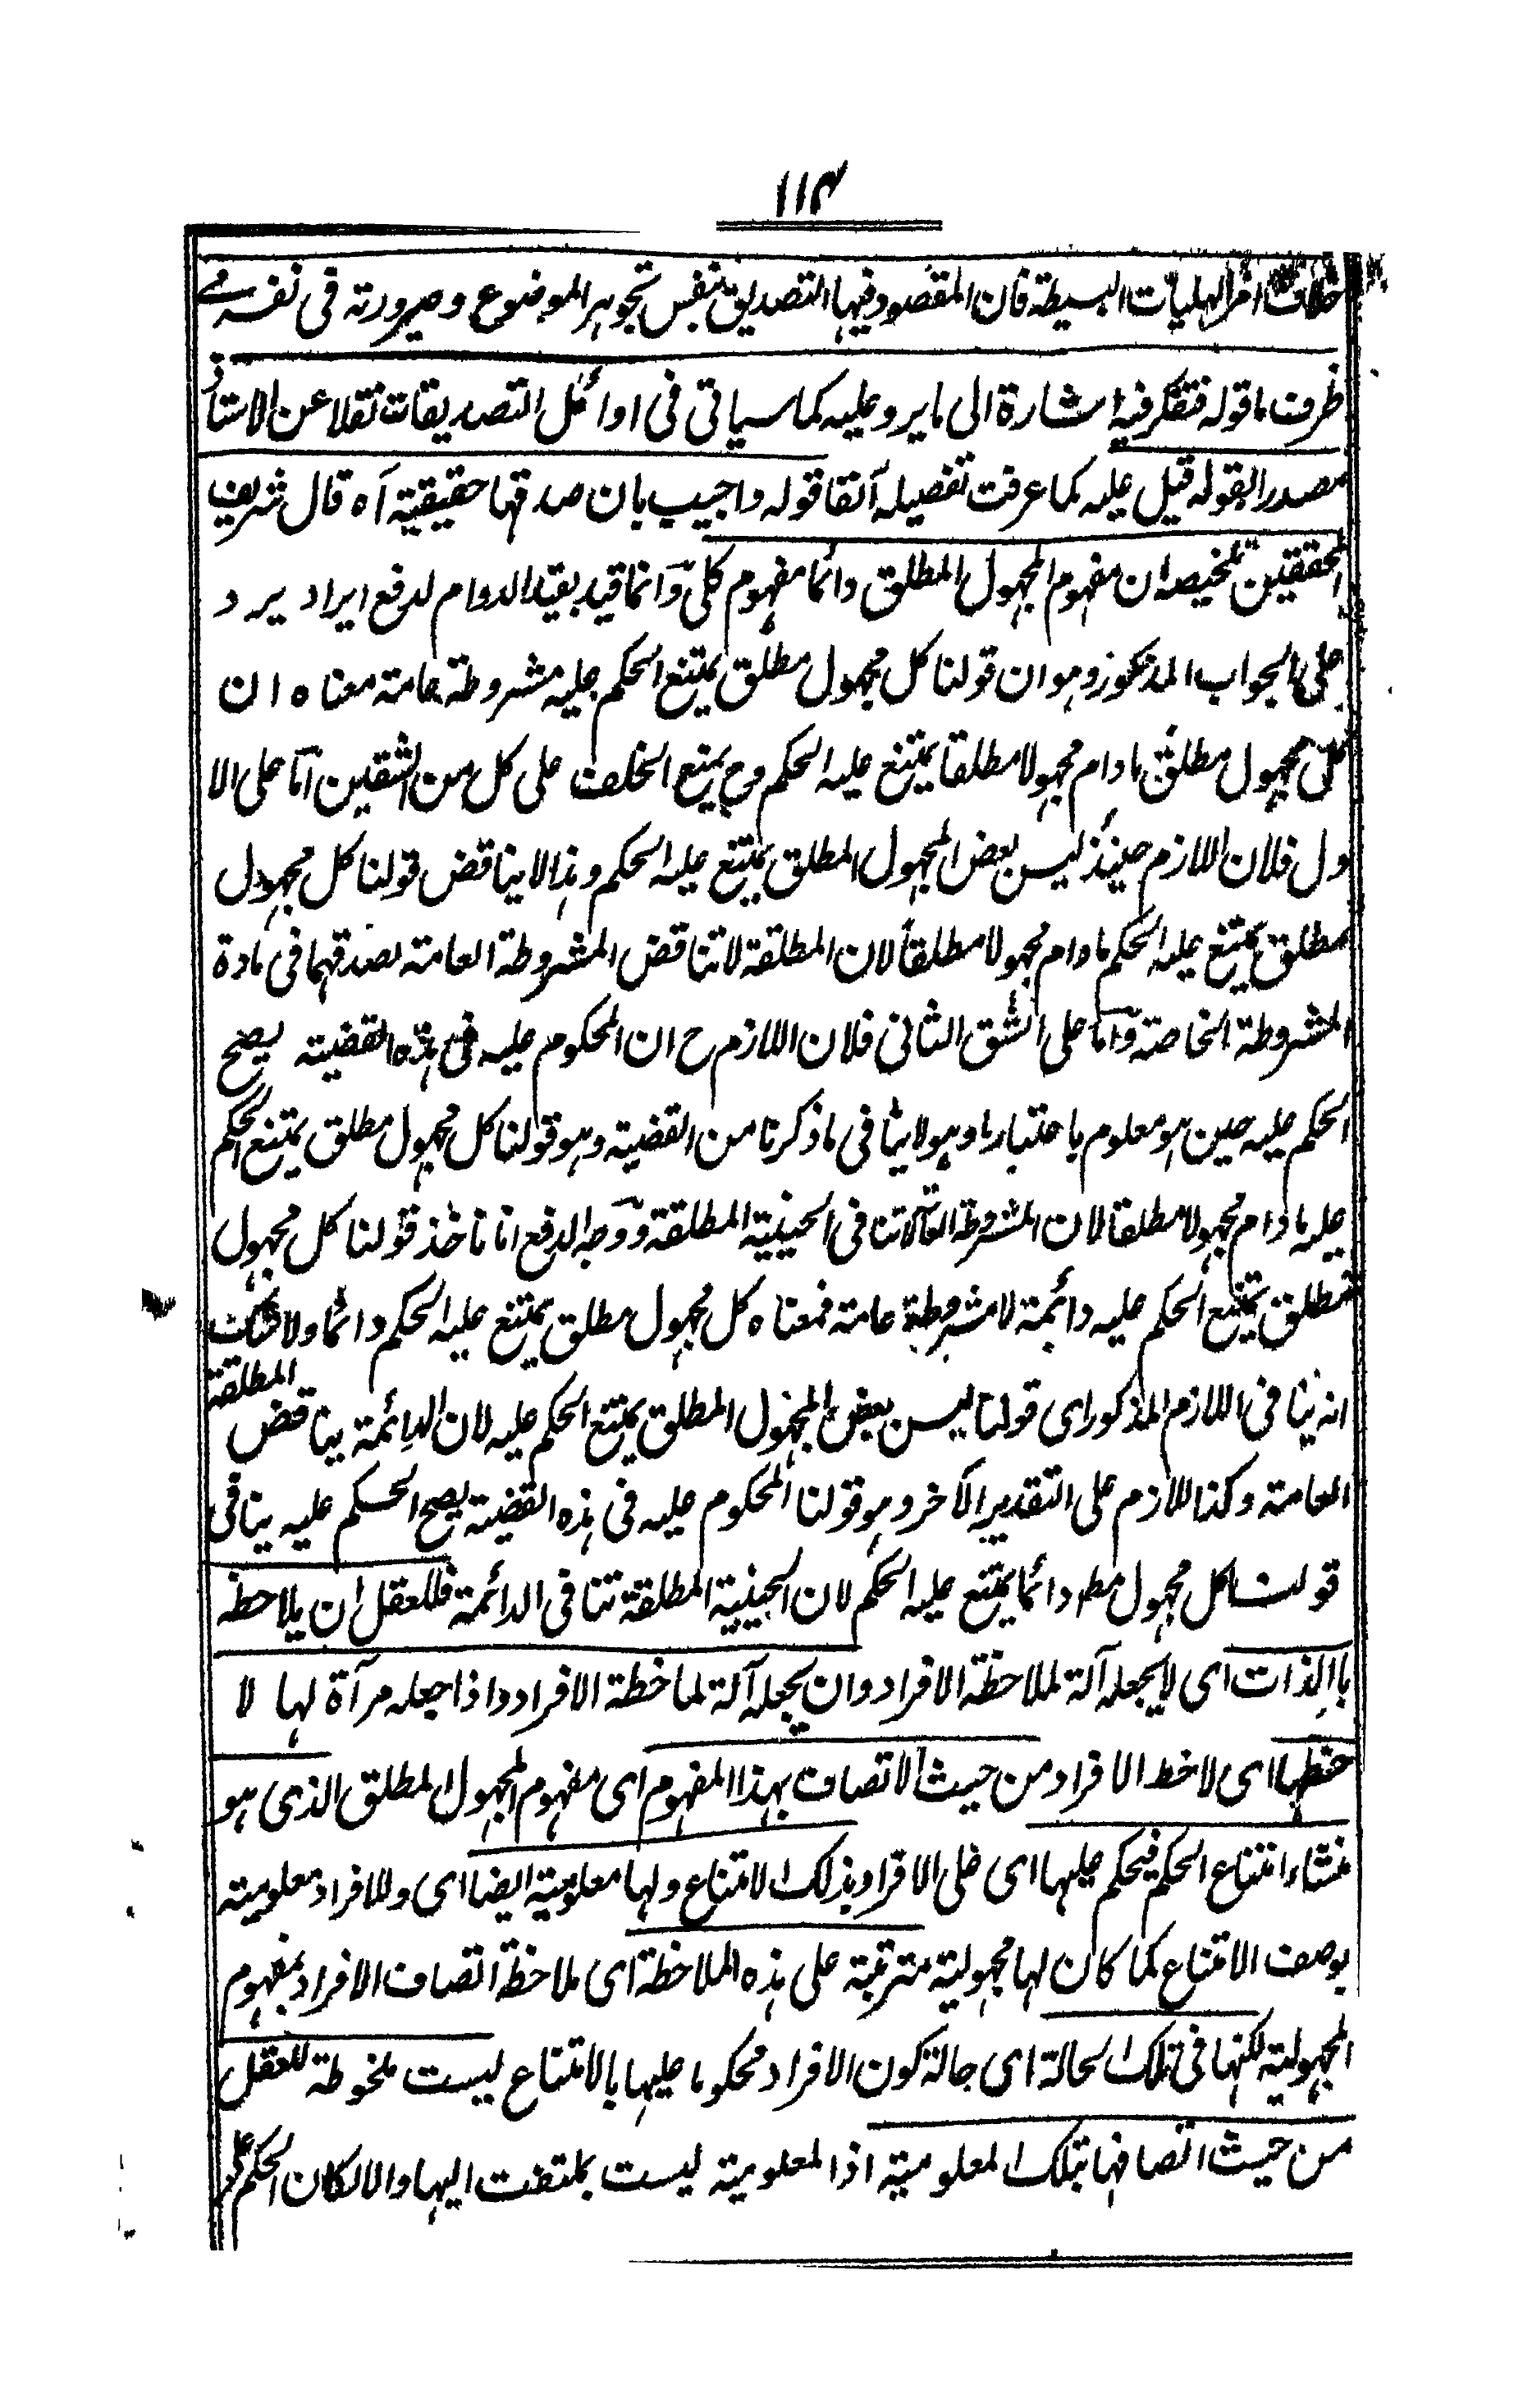 ١١٤
خلاف امر الهليات البسيطة فان المقصود فيها التصديق بنفس تجوهر الموضوع وصيرورته فى نفسه
ظرف ما قوله فتفكر فيه اشارة الى ما يرد عليه كما سياتى فى اوائل التصديقات نقلا عن الاستاذ
مصدرا بقوله قيل عليه كما عرفت تفصيله آنفا قوله واجيب بان صدقها حقيقية آه قال شريف
المحققين تلخيصه ان مفهوم المجهول المطلق دائما مفهوم كلى وانما قيد بقيد الدوام لدفع ايراد يرد
على الجواب المذكور وهو ان قولنا كل مجهول مطلق يمتنع الحكم عليه مشروطة عامة معناه ان
كل مجهول مطلق ما دام مجهولا مطلقا يمتنع عليه الحكم وح يمنع الخلف على كل من الشقين اما على الا
ول فلان اللازم حينئذ ليس بعض المجهول المطلق يمتنع عليه الحكم وهذا لا يناقض قولنا كل مجهول
مطلق يمتنع عليه الحكم ما دام مجهولا مطلقا لان المطلقة لا تناقض المشروطة العامة لصدقهما فى مادة
المشروطة الخاصة واما على الشق الثانى فلان اللازم ح ان المحكوم عليه فى هذه القضية يصح
الحكم عليه حين هو معلوم باعتبارها وهو لا ينافى ما ذكرنا من القضية وهو قولنا كل مجهول مطلق يمتنع الحكم
عليه ما دام مجهولا مطلقا لان المشروطة العامة لا تنافى الحينية المطلقة ووجه الدفع انا ناخذ قولنا كل مجهول
مطلق يمتنع الحكم عليه دائمة لا مشروطة عامة فمعناه كل مجهول مطلق يمتنع عليه الحكم دائما ولا شك
انه ينافى اللازم المذكور اى قولنا ليس بعض المجهول المطلق يمتنع الحكم عليه لان الدائمة يناقض المطلقة
العامة وكذا اللازم على التقدير الآخر وهو قولنا المحكوم عليه فى هذه القضية يصح الحكم عليه ينافى
قولنا كل مجهول مط دائما يمتنع عليه الحكم لان الحينية المطلقة تنافى الدائمة فللعقل ان يلاحظه
بالذات اى لا يجعله آلة لملاحظة الافراد وان يجعله آلة لملاحظة الافراد واذا جعله مرآة لها لا
حظها اى لاحظ الافراد من حيث الاتصاف بهذا المفهوم اى مفهوم المجهول المطلق الذى هو
منشاء امتناع الحكم فيحكم عليها اى على الافراد بذلك الامتناع ولها معلومية ايضا اى وللافراد معلومية
بوصف الامتناع كما كان لها مجهولية مترتبة على هذه الملاحظة اى ملاحظة اتصاف الافراد بمفهوم
المجهولية لكنها فى تلك الحالة اى حالة كون الافراد محكوما عليها بالامتناع ليست ملحوظة للعقل
من حيث اتصافها بتلك المعلومية اذ المعلومية ليست بملتفت اليها والا لكان الحكم على